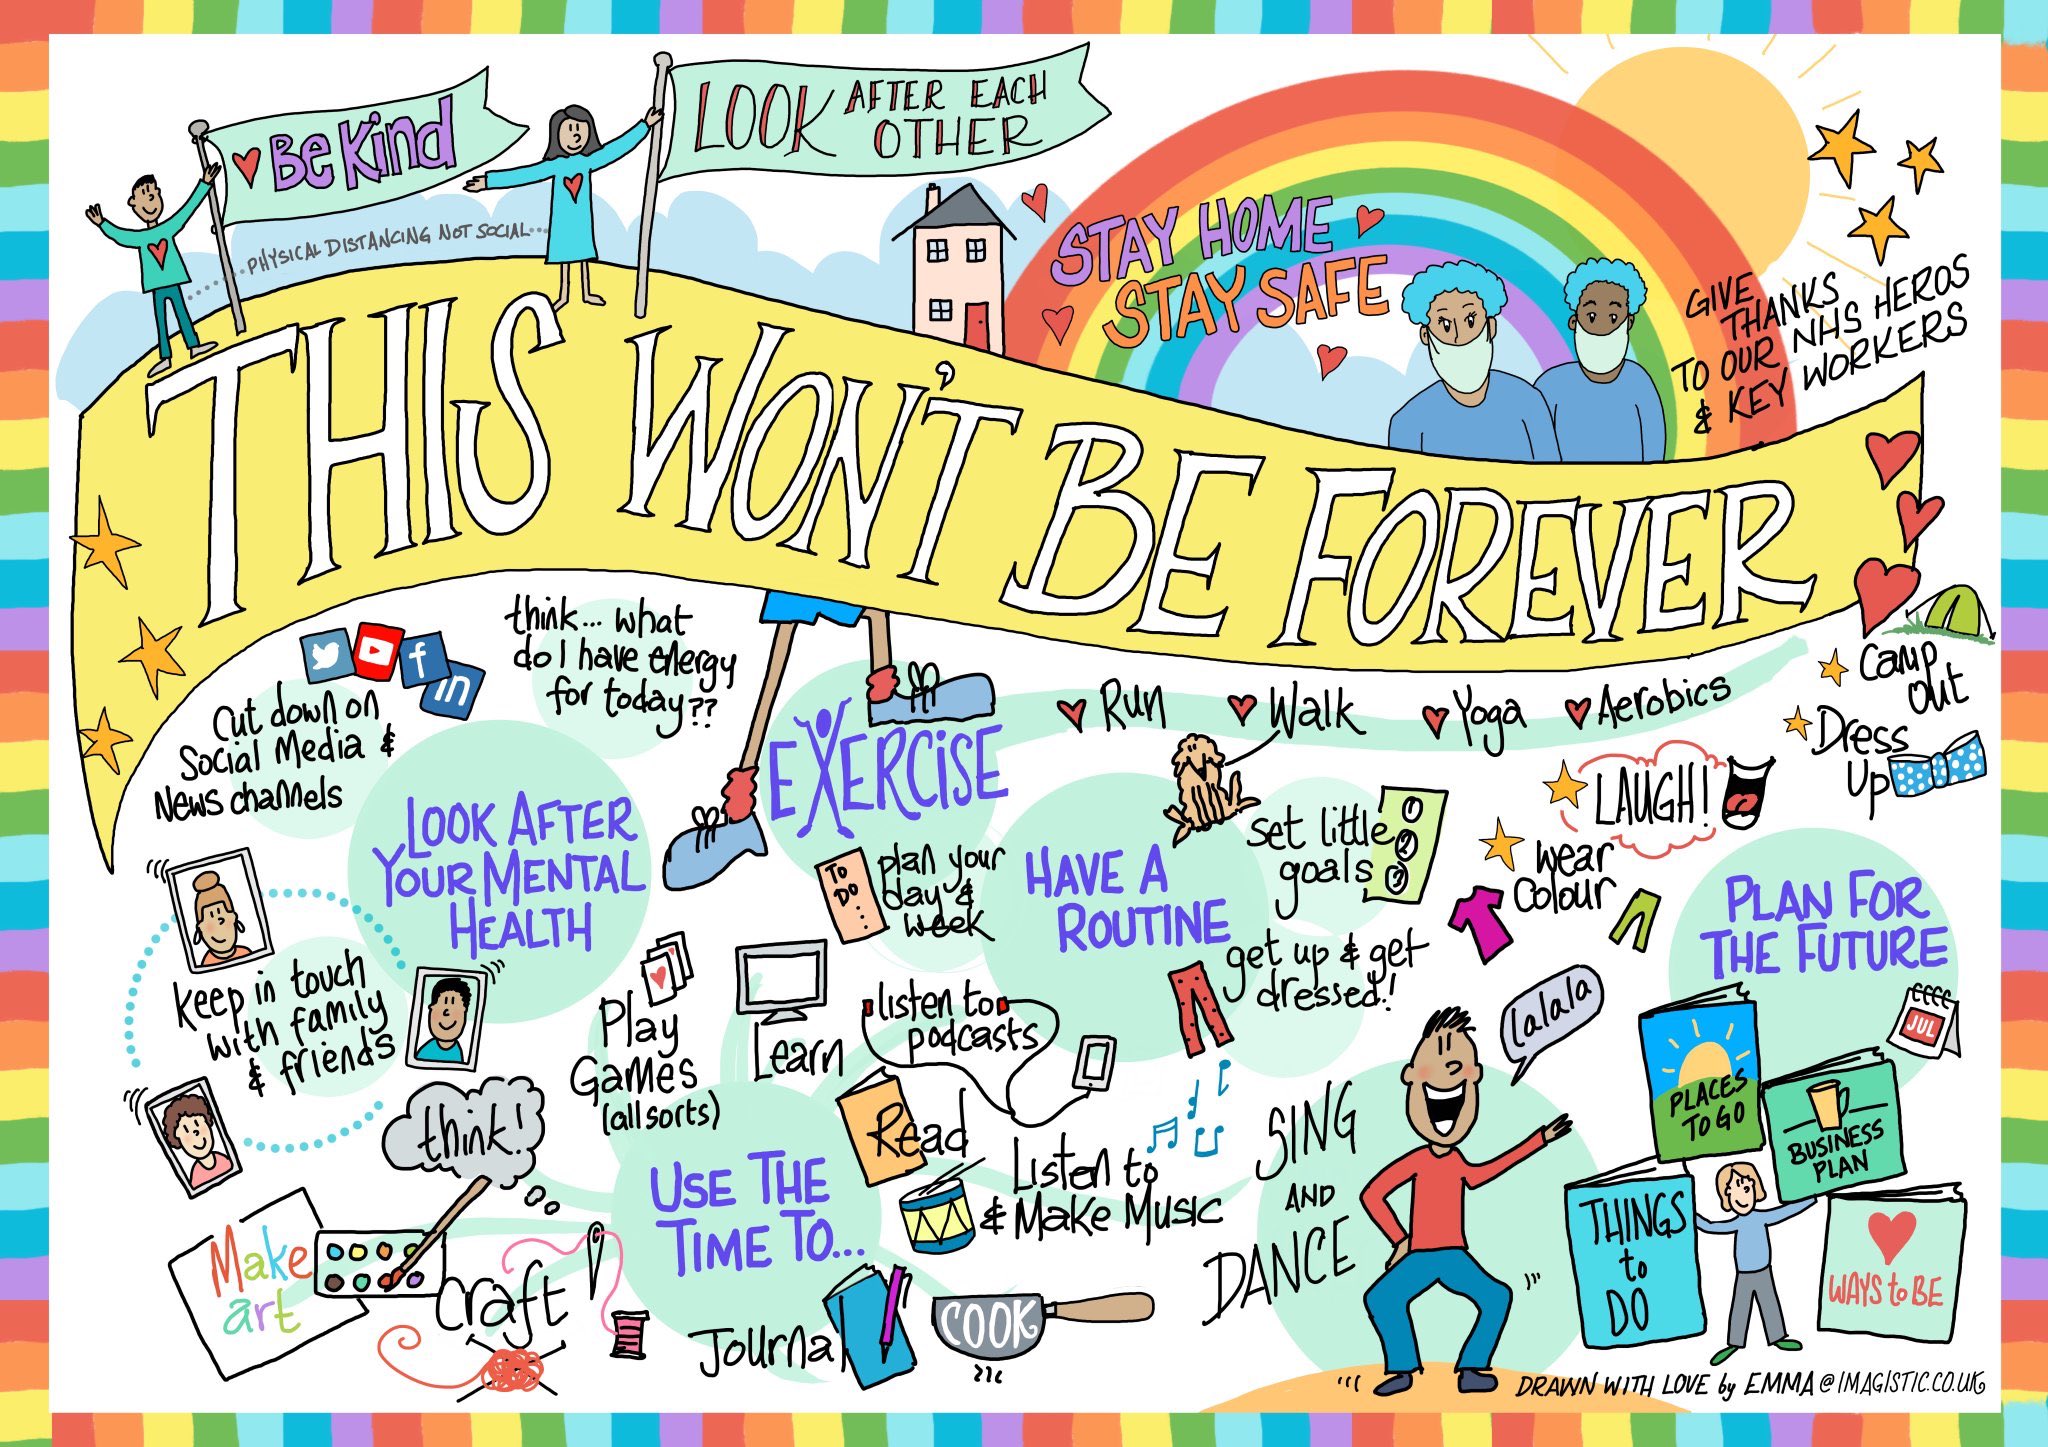 Be Kind
LOOK AFTER EACH
OTHER
PHYSICAL DISTANCING NOT SOCIAL...
STAY HOME
STAY SAFE
GIVE
THANKS
TO OUR NHS HEROS
& KEY WORKERS
THIS WON'T BE FOREVER
f
in
Cut down on
Social Media &
News channels
think... what
do I have energy
for today??
LOOK AFTER
YOUR MENTAL
HEALTH
keep in touch
with family
& friends
EXERCISE
Run
Walk
Yoga
Aerobics
TO
DO...
plan your
day &
week
HAVE A
ROUTINE
set little
goals
1
2
3
get up & get
dressed!
Camp
out
Dress
Up
LAUGH!
wear
Colour
PLAN FOR
THE FUTURE
JUL
PLACES
TO GO
BUSINESS
PLAN
THINGS
to
DO
WAYS to BE
think!
Play
Games
(all sorts)
Learn
listen to
podcasts
Read
USE THE
TIME TO...
Listen to
& Make Music
Make
art
Craft
Journal
COOK
SING
AND
DANCE
lalala
DRAWN WITH LOVE by EMMA @IMAGISTIC.CO.UK